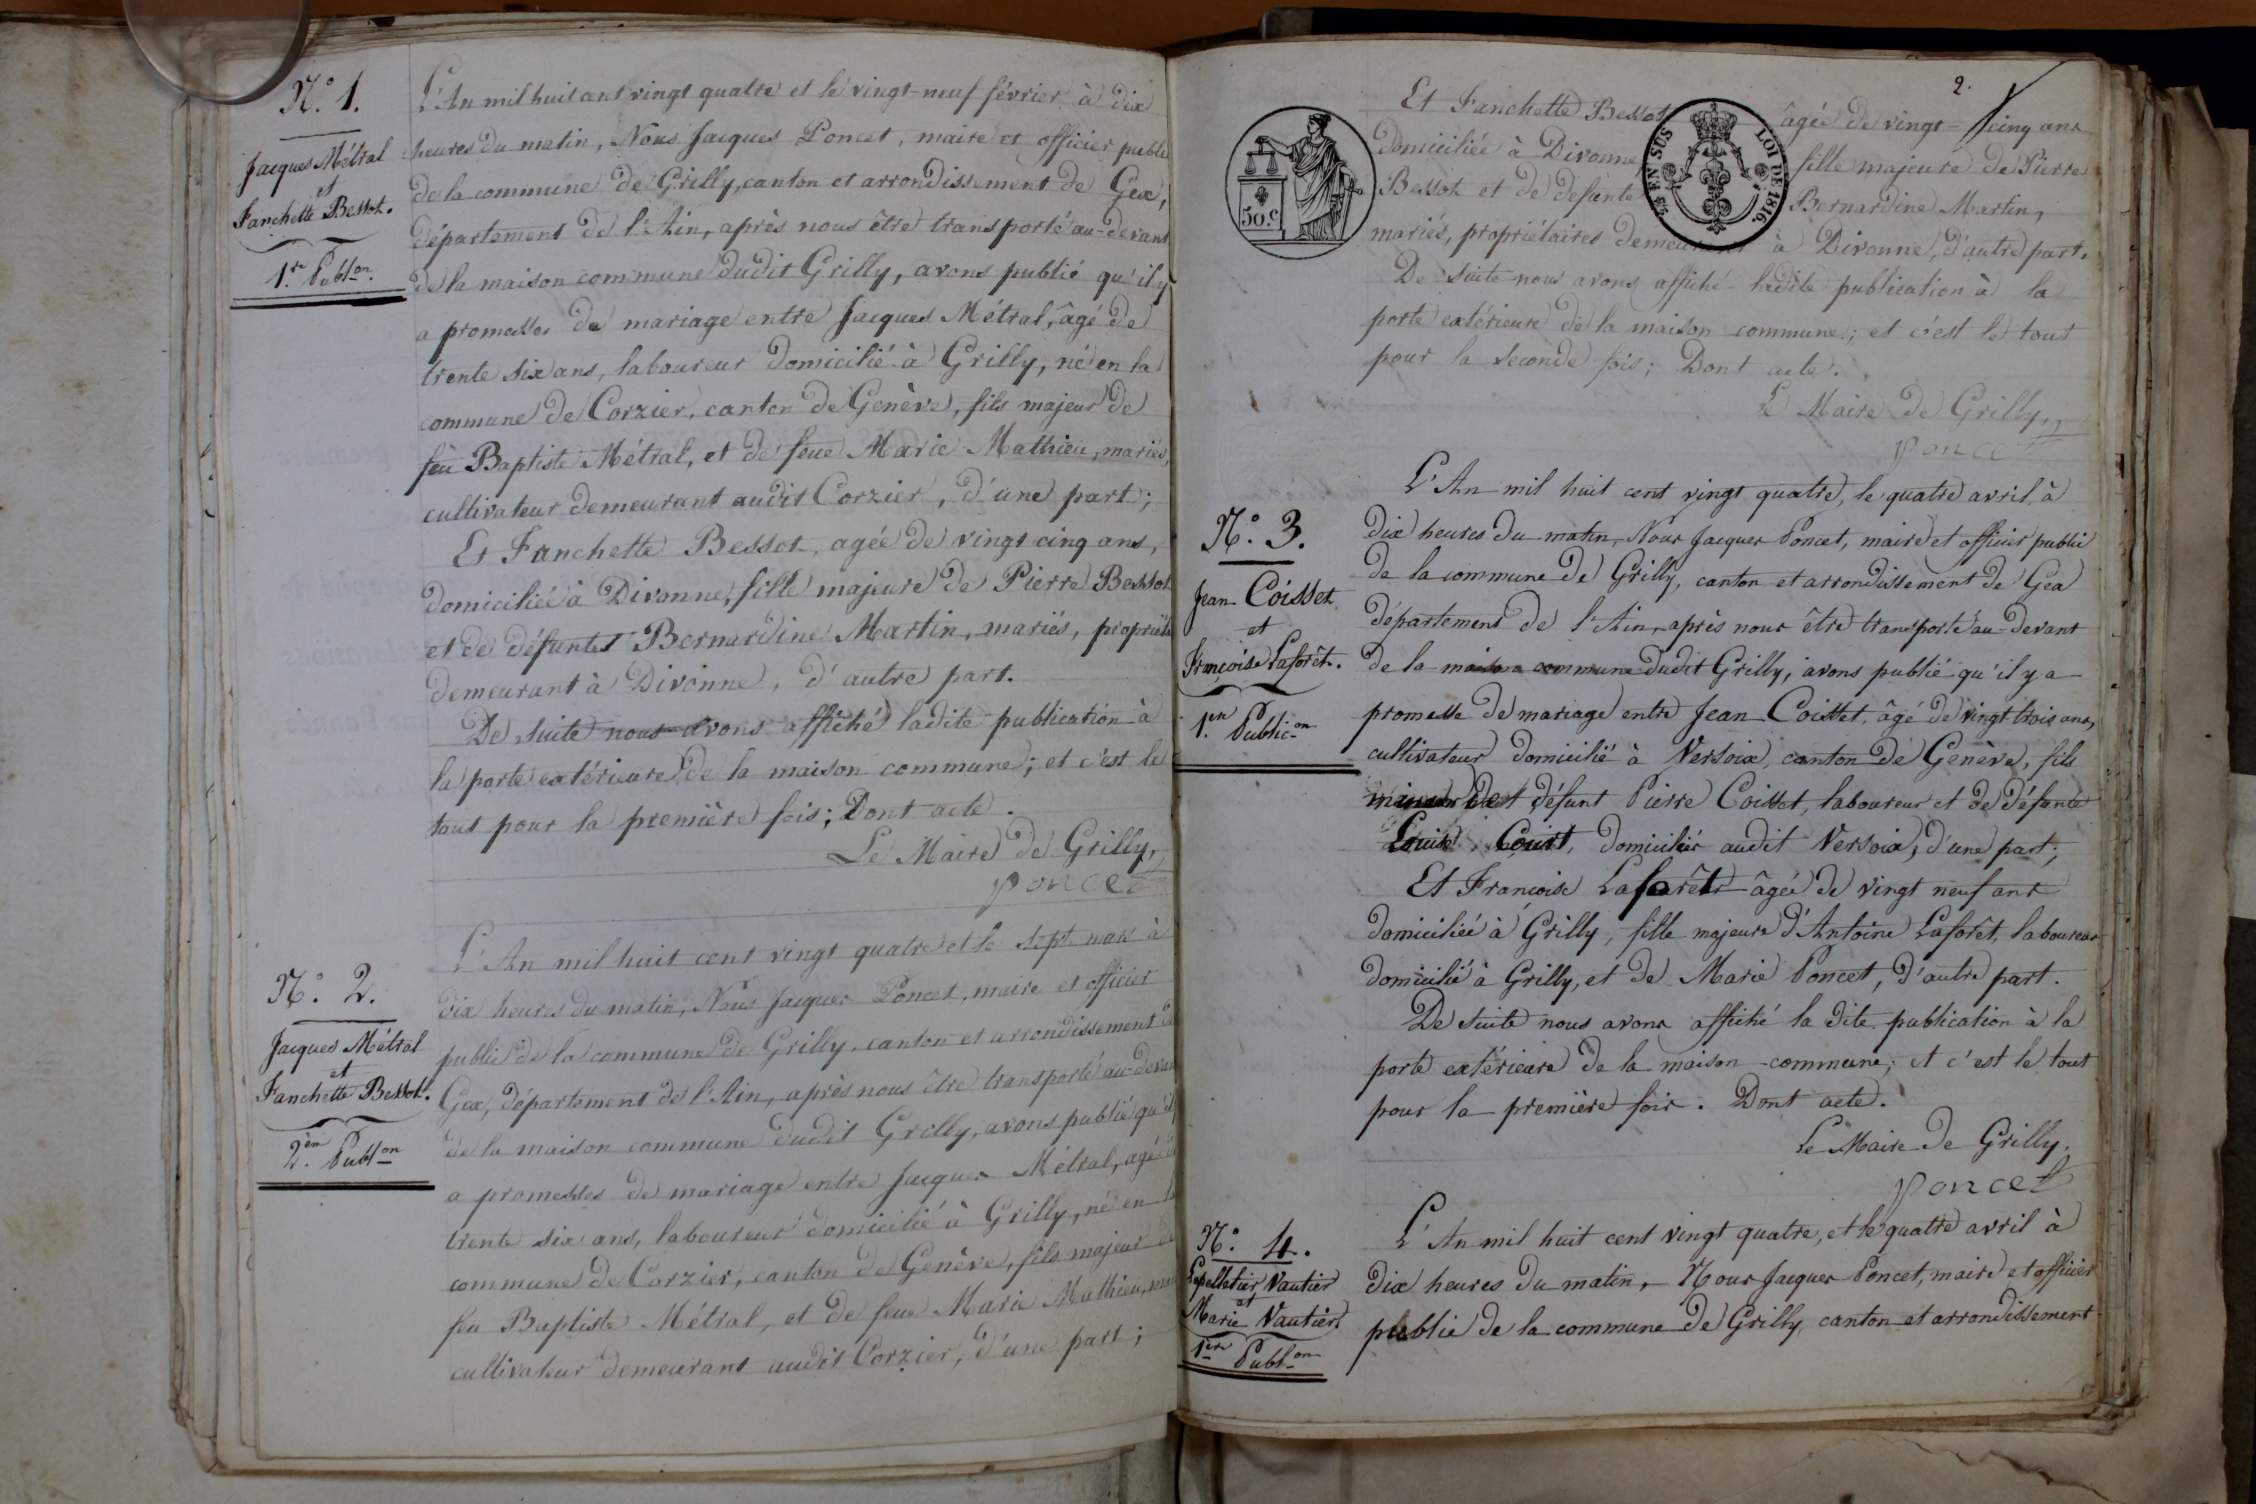 N.° 1.
Jacques Métral
et
Fanchette Bessot.
1.re Publ.on
L'An mil huit cent vingt quatre et le vingt-neuf février, à dix
heures du matin, Nous Jacques Poncet, maire et officier public
de la commune de Grilly, canton et arrondissement de Gex,
département de l'Ain, après nous être transporté au-devant
de la maison commune dudit Grilly, avons publié qu'il y
a promesses de mariage entre Jacques Métral, âgé de
trente six ans, laboureur domicilié à Grilly, né en la
commune de Corzier, canton de Genève, fils majeur de
feu Baptiste Métral, et de feue Marie Mathieu, mariés,
cultivateur demeurant audit Corzier, d'une part;
Et Fanchette Bessot, agée de vingt cinq ans,
domiciliée à Divonne, fille majeure de Pierre Bessot
et de défunte Bernardine Martin, mariés, propriét
demeurant à Divonne, d'autre part.
De suite nous avons affiché ladite publication à
la porte extérieure de la maison commune; et c'est le
tout pour la première fois; Dont acte.
Le Maire de Grilly,
poncet
N.° 2.
Jacques Métral
et
Fanchette Bessot.
2.em Publ.on
L'An mil huit cent vingt quatre et le sept mars à
dix heures du matin, Nous Jacques Poncet, maire et officier
public de la commune de Grilly, canton et arrondissement de
Gex, département de l'Ain, après nous être transporté au-devan
de la maison commune dudit Grilly, avons publié qu'il
a promesses de mariage entre Jacques Métral, agé de
trente six ans, laboureur domicilié à Grilly, né en la
commune de Corzier, canton de Genève, fils majeur de
feu Baptiste Métral, et de feue Marie Mathieu, mar
cultivateur demeurant audit Corzier, d'une part;
2.
50.C
25 EN SUS
LOI DE 1816.
Et Fanchette Bessot âgée de vingt-cinq ans
domiciliée à Divonne, fille majeure de Pierre
Bessot et de defunte Bernardine Martin,
mariés, propriétaires demeurant à Divonne, d'autre part.
De suite nous avons affiché ladite publication à la
porte extérieure de la maison commune; et c'est le tout
pour la seconde fois; Dont acte.
Le Maire de Grilly,
poncet
N.° 3.
Jean Coisset
et
Françoise Laforêt.
1.en Public.on
L'An mil huit cent vingt quatre, le quatre avril à
dix heures du matin, Nous Jacques Poncet, maire et officier public
de la commune de Grilly, canton et arrondissement de Gex
département de l'Ain, après nous être transporté au-devant
de la maison commune dudit Grilly, avons publié qu'il y a
promesse de mariage entre Jean Coisset, âgé de vingt trois ans,
cultivateur domicilié à Versoix, canton de Genève, fils
défunt Pierre Coisset, laboureur et de défunte
Louise Court, domiciliés audit Versoix, d'une part;
Et Françoise Laforêt âgée de vingt neuf ans
domiciliée à Grilly, fille majeure d'Antoine Laforêt, laboureur
domicilié à Grilly, et de Marie Poncet, d'autre part.
De suite nous avons affiché la dite publication à la
porte extérieure de la maison commune; et c'est le tout
pour la première fois. Dont acte.
Le Maire de Grilly,
poncet
N.° 4.
Lepelletier Vautier
et
Marie Vautier
1.ere Publ.on
L'An mil huit cent vingt quatre, et le quatre avril à
dix heures du matin, Nous Jacques Poncet, maire et officier
public de la commune de Grilly, canton et arrondissement